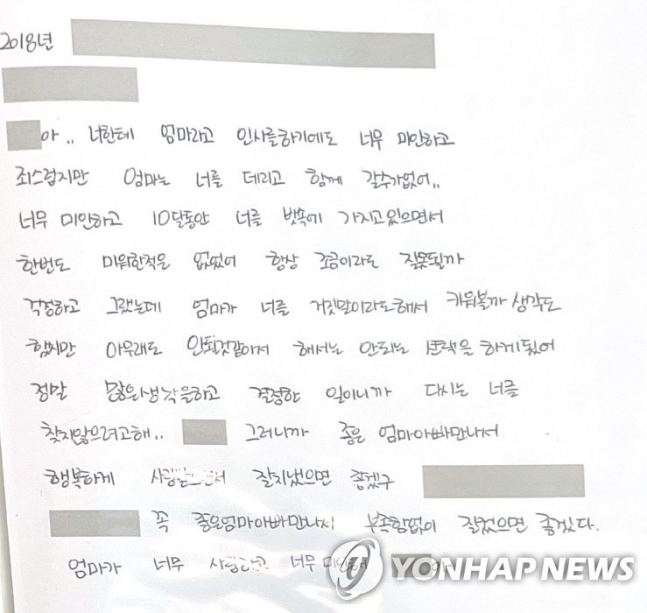 2018년
아.. 너한테 엄마라고 인사를하기에도 너무 미안하고
죄스럽지만 엄마는 너를 데리고 함께 갈수가없어..
너무 미안하고 10달동안 너를 뱃속에 가지고있으면서
한번도 미워한적은 없었어 항상 조금이라도 잘못될까
걱정하고 그랬는데 엄마가 너를 거짓말이라도해서 키워볼까 생각도
했지만 아무래도 안될것같아서 해서는 안되는 선택을 하게됬어
정말 많은생각을하고 결정한 일이니까 다시는 너를
찾지않으려고해.. 그러니까 좋은 엄마아빠만나서
행복하게 잘지냈으면 좋겠구
꼭 좋은엄마아빠만나서 부족함없이 잘컸으면 좋겠다.
엄마가 너무 사랑하고 너무 미안해
YONHAP NEWS